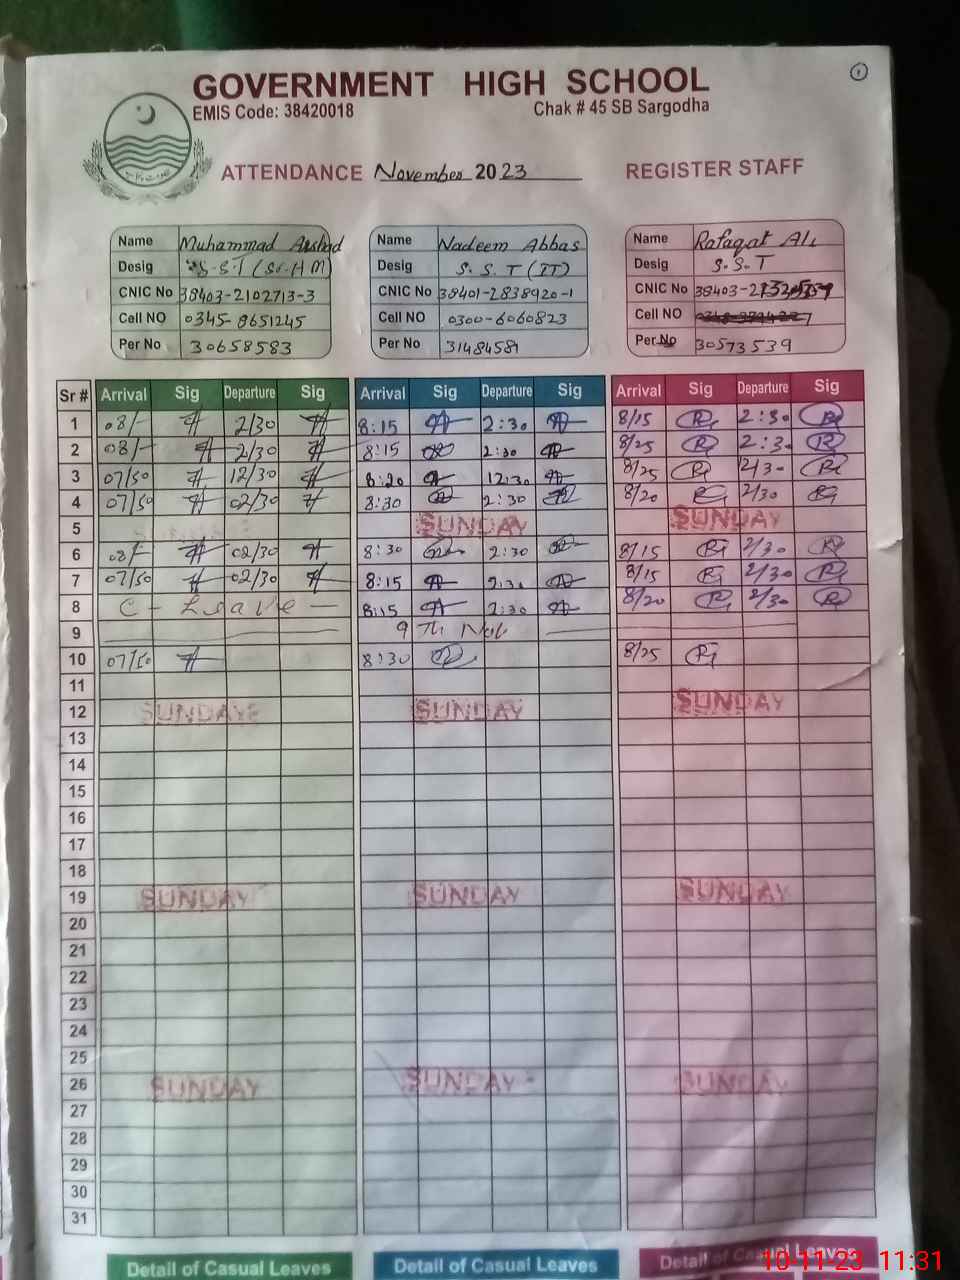 GOVERNMENT HIGH SCHOOL
EMIS Code: 38420018 Chak # 45 SB Sargodha
1
ATTENDANCE November 2023 REGISTER STAFF
Name Muhammad Arshad Name Nadeem Abbas Name Rafaqat Ali
Desig S.S.T (Sr.HM) Desig S.S.T (IT) Desig S.S.T
CNIC No 38403-2102713-3 CNIC No 38401-2838920-1 CNIC No 38403-2
Cell NO 0345-8651245 Cell NO 0300-6060823 Cell NO
Per No 30658583 Per No 31484581 Per No 30573539
Sr # Arrival Sig Departure Sig Arrival Sig Departure Sig Arrival Sig Departure Sig
1 08/- 2/30 8:15 2:30 8/15 2:30
2 08/- 2/30 8:15 2:30 8/25 2:30
3 07/50 12/30 8:20 12:30 8/25 12/30
4 07/50 02/30 8:30 2:30 8/20 2/30
5 SUNDAY SUNDAY
6 08/- 02/30 8:30 2:30 8/15 2/30
7 07/50 02/30 8:15 2:30 8/15 2/30
8 C - Leave - 8:15 2:30 8/20 2/30
9 9 Th Nov
10 07/50 8:30 8/25
11
12 SUNDAY SUNDAY SUNDAY
13
14
15
16
17
18
19 SUNDAY SUNDAY SUNDAY
20
21
22
23
24
25
26 SUNDAY SUNDAY SUNDAY
27
28
29
30
31
Detail of Casual Leaves Detail of Casual Leaves Detail of Casual Leaves
10-11-23 11:31